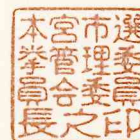 本宮市選
挙管理委
員会委員
長之印